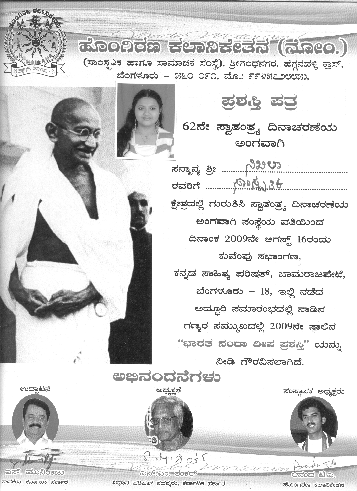 ಹೊಂಗಿರಣ ಕಲಾನಿಕೇತನ (ನೋಂ.)
(ಸಾಂಸ್ಕೃತಿಕ ಹಾಗೂ ಸಾಮಾಜಿಕ ಸಂಸ್ಥೆ) ಶ್ರೀಗಂಧನಗರ, ಹೆಗ್ಗನಹಳ್ಳಿ ಕ್ರಾಸ್,
ಬೆಂಗಳೂರು - ೫೬೦ ೦೯೧. ಮೊ.:
ಪ್ರಶಸ್ತಿ ಪತ್ರ
62ನೇ ಸ್ವಾತಂತ್ರ್ಯ ದಿನಾಚರಣೆಯ
ಅಂಗವಾಗಿ
ಸನ್ಮಾನ್ಯ ಶ್ರೀ ನಿಖಿಲಾ
ರವರಿಗೆ ಸಾಂಸ್ಕೃತಿಕ
ಕ್ಷೇತ್ರದಲ್ಲಿ ಗುರುತಿಸಿ ಸ್ವಾತಂತ್ರ್ಯ ದಿನಾಚರಣೆಯ
ಅಂಗವಾಗಿ ಸಂಸ್ಥೆಯ ವತಿಯಿಂದ
ದಿನಾಂಕ 2009ನೇ ಆಗಸ್ಟ್ 16ರಂದು
ಕುವೆಂಪು ಸಭಾಂಗಣ.
ಕನ್ನಡ ಸಾಹಿತ್ಯ ಪರಿಷತ್, ಚಾಮರಾಜಪೇಟೆ,
ಬೆಂಗಳೂರು - 18, ಇಲ್ಲಿ ನಡೆದ
ಅದ್ಧೂರಿ ಸಮಾರಂಭದಲ್ಲಿ ನಾಡಿನ
ಗಣ್ಯರ ಸಮ್ಮುಖದಲ್ಲಿ 2009ನೇ ಸಾಲಿನ
"ಭಾರತ ನಂದಾ ದೀಪ ಪ್ರಶಸ್ತಿ" ಯನ್ನು
ನೀಡಿ ಗೌರವಿಸಲಾಗಿದೆ.
ಅಭಿನಂದನೆಗಳು
ಉದ್ಘಾಟನೆ ಅಧ್ಯಕ್ಷತೆ ಸಂಸ್ಥಾಪಕ ಅಧ್ಯಕ್ಷರು